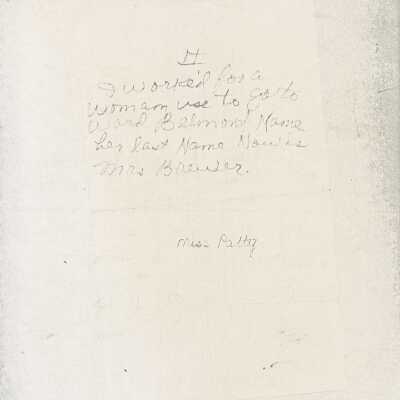 II
I worked for a
woman use to go to
Ward Belmont Name
her last Name Now is
Mrs Brewer.
Miss Patty